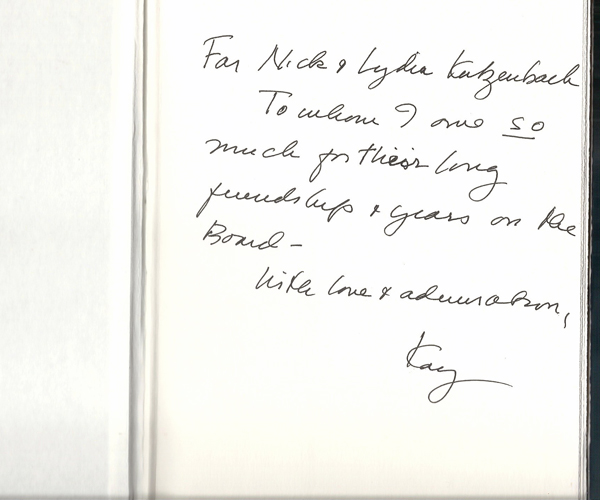 For Nick & Lydia Katzenbach
To whom I owe so
much for their long
friendship & years on the
Board –
With love & admiration,
Kay